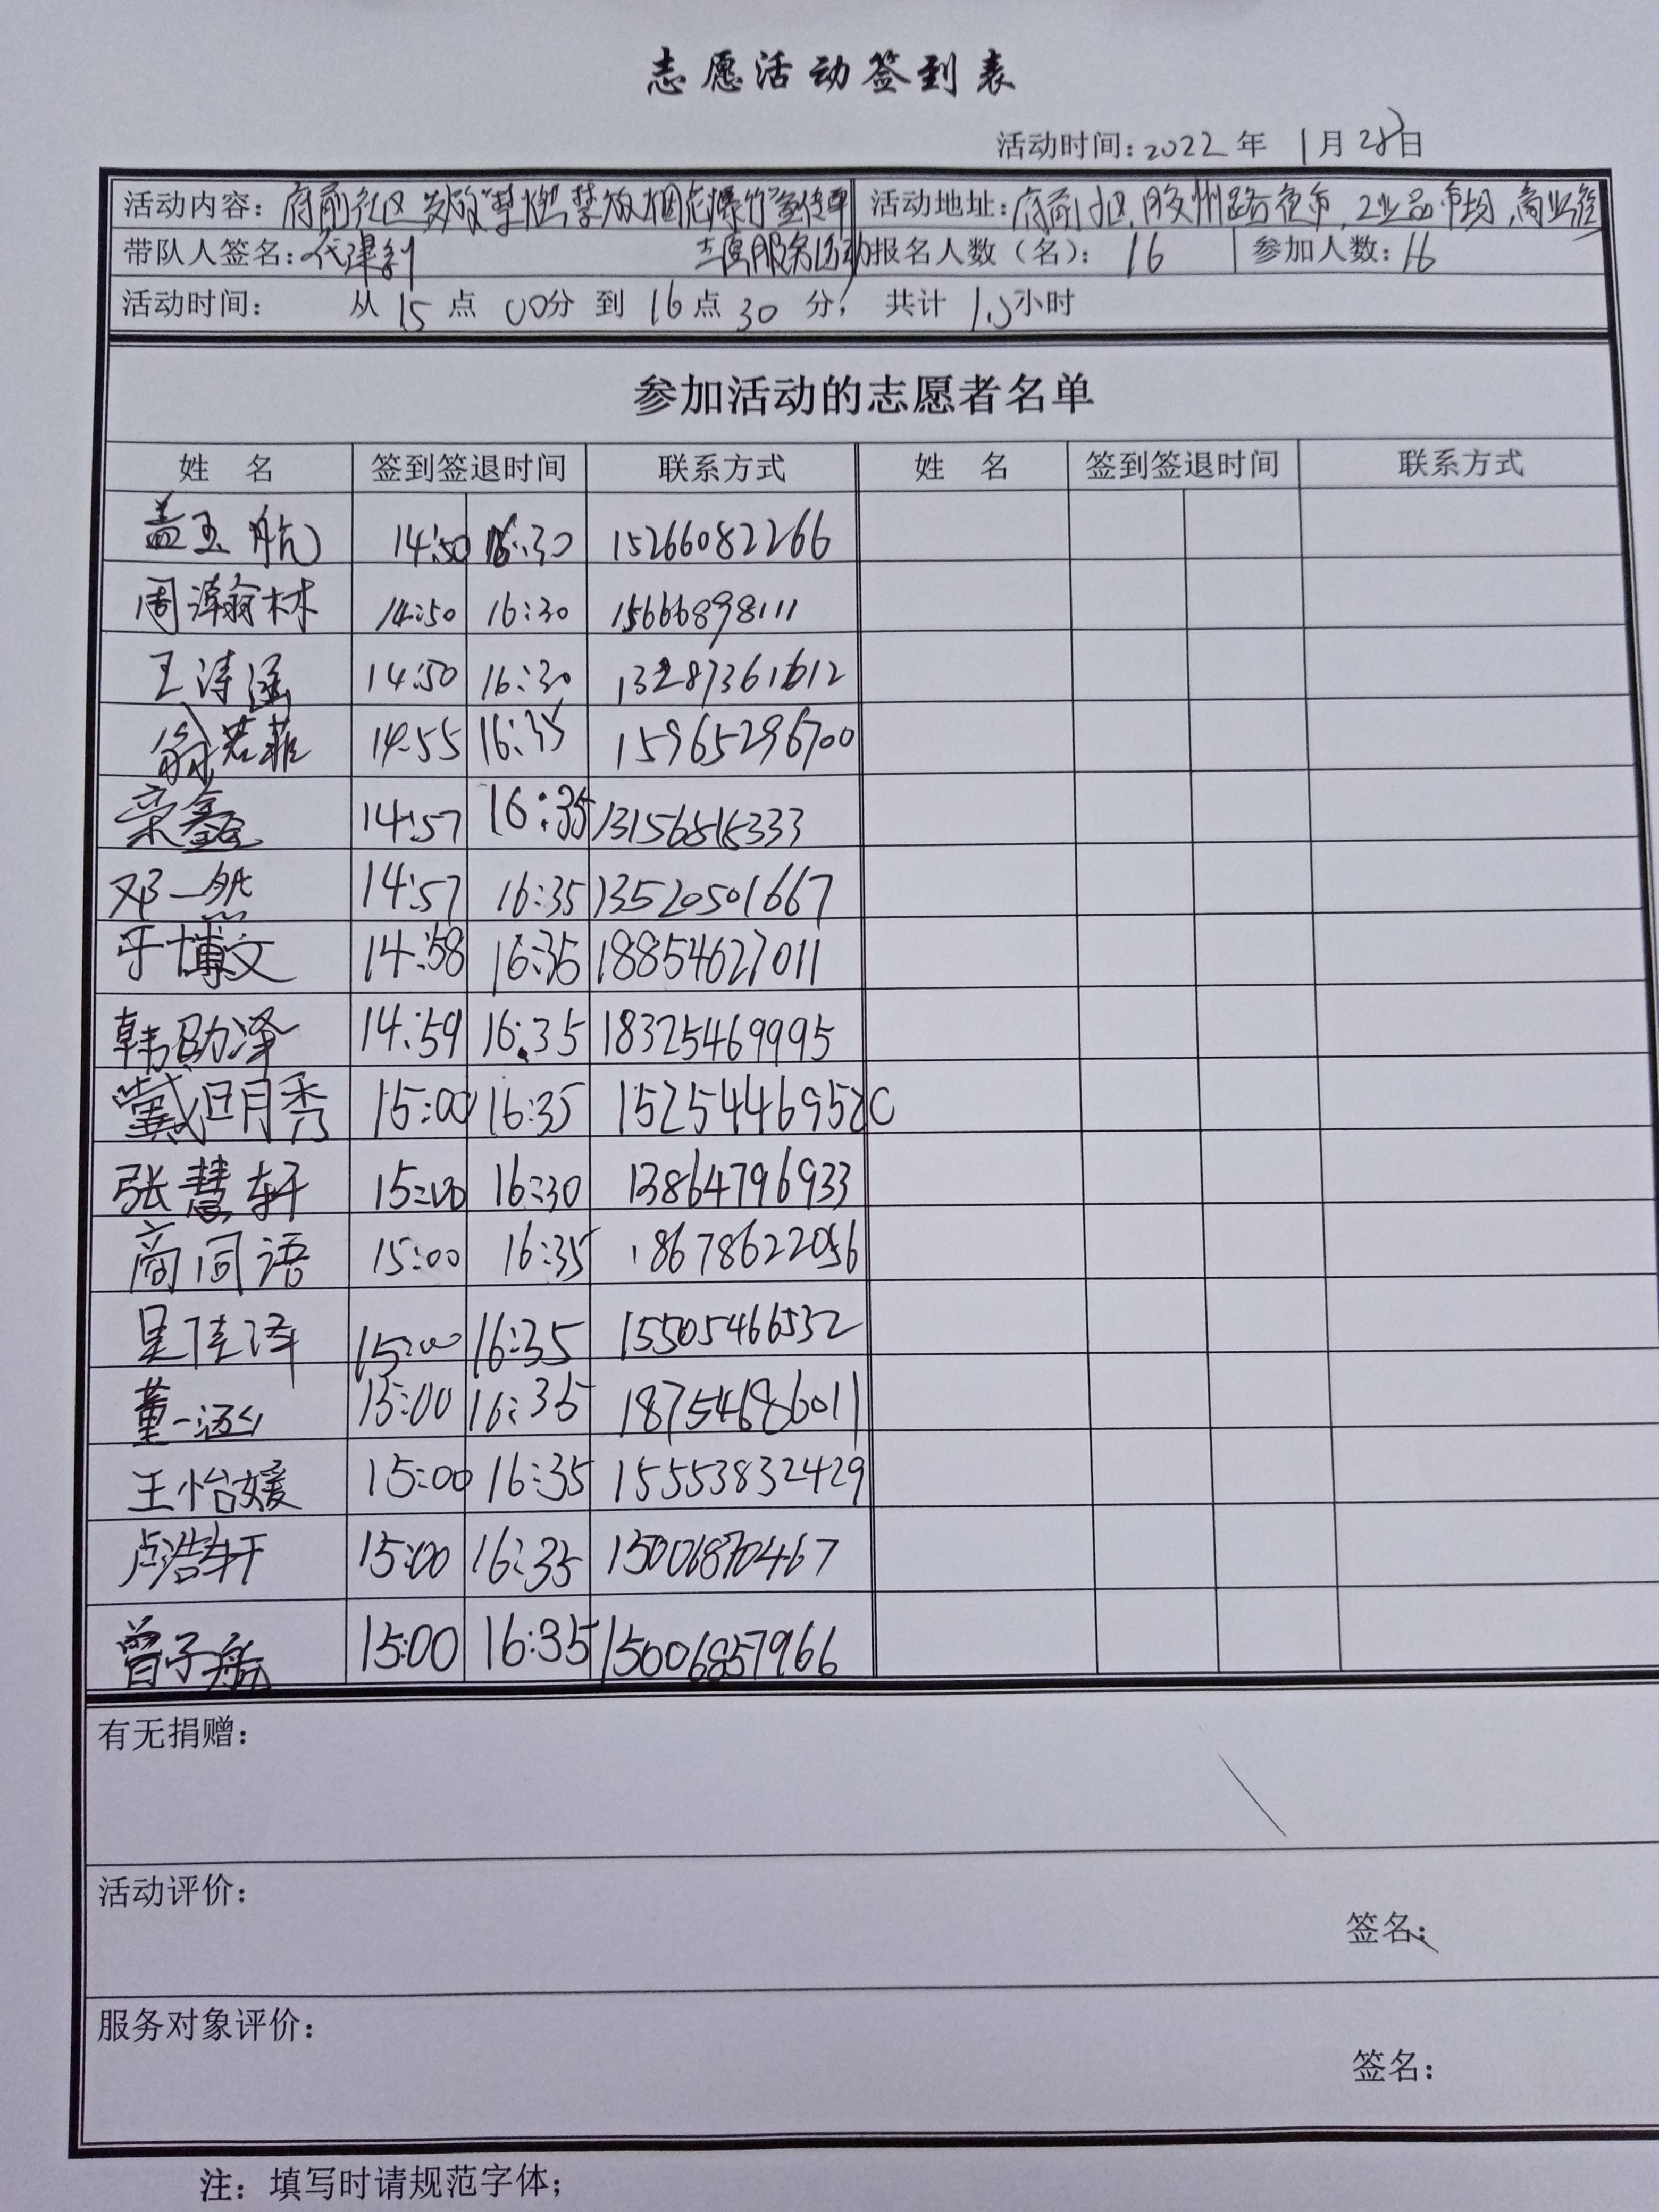 志愿活动签到表
活动时间:2022年 1月28日
活动内容:府前社区发放"禁燃禁放烟花爆竹"宣传单 活动地址:府前小区,胶州路夜市,工业品市场,商业街
带队人签名: 志愿服务活动 报名人数(名): 16 参加人数:16
活动时间: 从15点00分到16点30分; 共计1.5小时
参加活动的志愿者名单
姓 名 签到签退时间 联系方式 姓 名 签到签退时间 联系方式
盖玉航 14:50 16:30 15266082266
周瀚林 14:50 16:30 15666898111
王涛涵 14:50 16:30 13287361612
徐若菲 14:55 16:35 15965296700
荣鑫 14:57 16:35
邓一然 14:57 16:35 13520501667
于博文 14:58 16:35 18854627011
韩勋泽 14:59 16:35 18325469995
戴明秀 15:00 16:35
张慧轩 15:00 16:30 13864796933
商同语 15:00 16:35 18678622056
吴佳泽 15:00 16:35 15505466532
董一泓 15:00 16:35 18754686011
王怡媛 15:00 16:35 15553832429
卢浩轩 15:00 16:35 15006870467
曾子航 15:00 16:35 15006857966
有无捐赠:
活动评价:
签名:
服务对象评价:
签名:
注:填写时请规范字体;